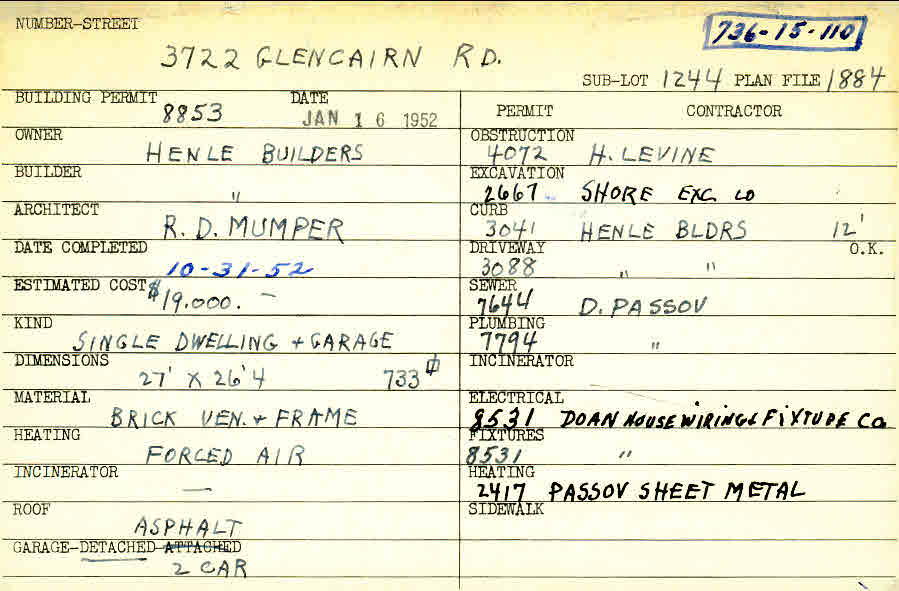 NUMBER-STREET
736-15-110
3722 GLENCAIRN RD.
SUB-LOT 1244 PLAN FILE 1884
BUILDING PERMIT DATE
8853 JAN 16 1952
OWNER
HENLE BUILDERS
BUILDER
"
ARCHITECT
R. D. MUMPER
DATE COMPLETED
10-31-52
ESTIMATED COST
$19,000. —
KIND
SINGLE DWELLING + GARAGE
DIMENSIONS
27' X 26'4 733 ⏍
MATERIAL
BRICK VEN. + FRAME
HEATING
FORCED AIR
INCINERATOR
—
ROOF
ASPHALT
GARAGE-DETACHED-ATTACHED
2 CAR
PERMIT CONTRACTOR
OBSTRUCTION
4072 H. LEVINE
EXCAVATION
2667 SHORE EXC. CO
CURB
3041 HENLE BLDRS 12'
DRIVEWAY O.K.
3088 " "
SEWER
7644 D. PASSOV
PLUMBING
7794 "
INCINERATOR
ELECTRICAL
8531 DOAN HOUSE WIRING & FIXTURE CO
FIXTURES
8531 "
HEATING
2417 PASSOV SHEET METAL
SIDEWALK